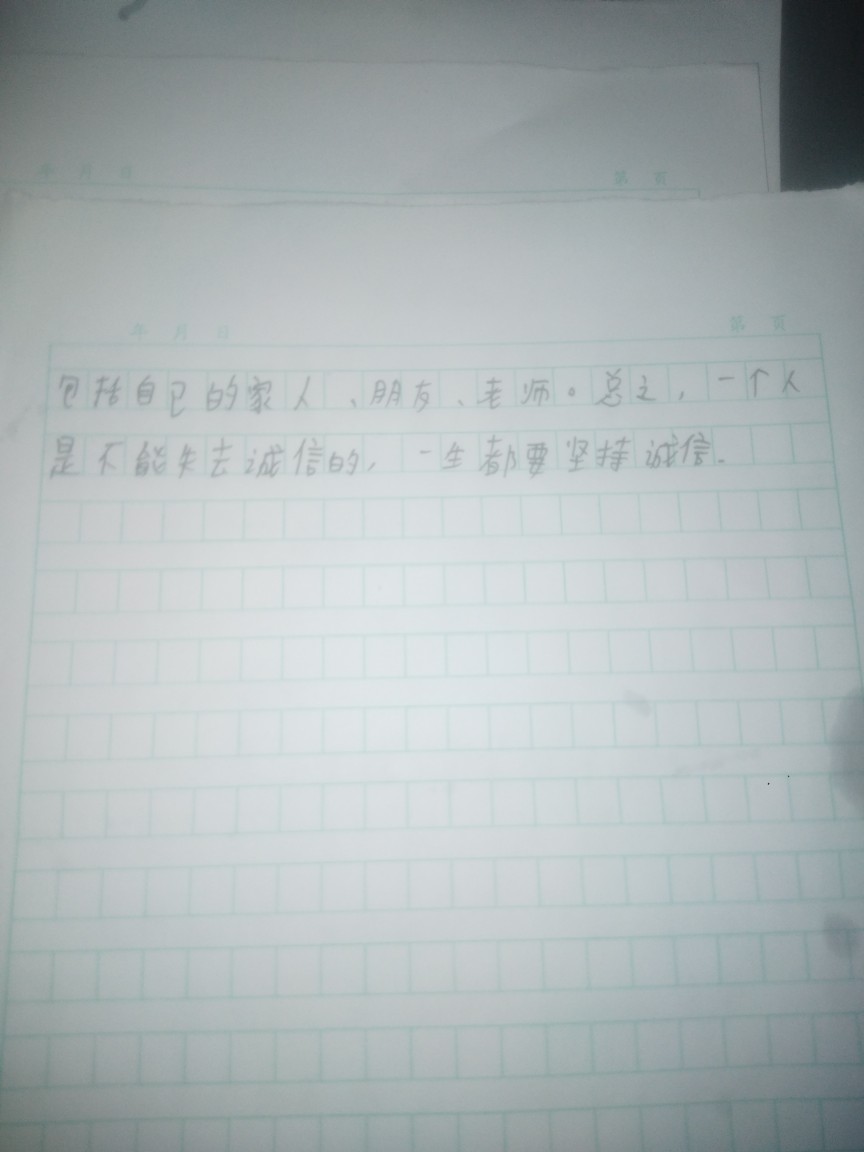 年 月 日 第 页
年 月 日 第 页
包括自已的家人、朋友、老师。总之,一个人
是不能失去诚信的,一生都要坚持诚信.